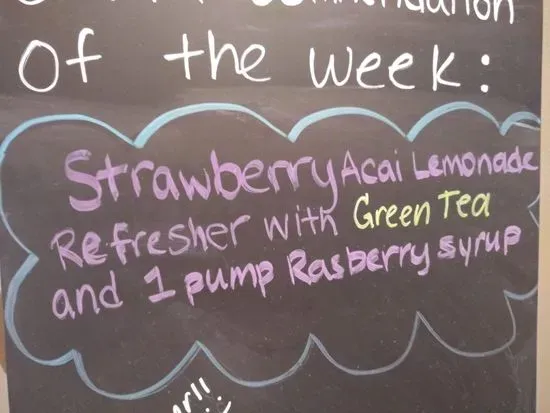 of the week:
Strawberry Acai Lemonade
Refresher with Green Tea
and 1 pump Rasberry syrup